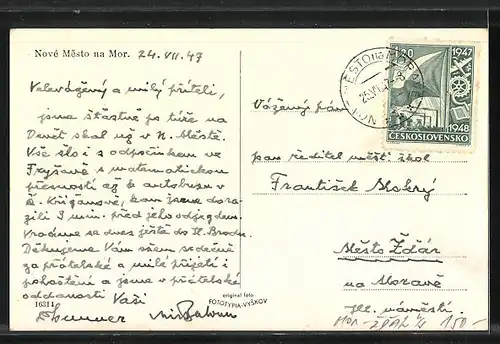 Nové Město na Mor. 24.VII.47
Velevážený a milý příteli,
jsme šťastně po túře na
Devět skal už v N. Městě.
Vše šlo i s odpočinkem ve
Fryšavě s matematickou
přesností až k autobusu v
Křižanově, kam jsme dora-
zili 3 min. před jeho odjezdem.
Vracíme se dnes ještě do H. Brodu.
Děkujeme Vám všem srdečně
za přátelské a milé přijetí i
pohoštění a jsme v přátelské
oddanosti Vaši
16311
original foto
FOTOTYPIA-VYŠKOV
Vážený pán
pan ředitel měšť. škol
František Mokrý
Město Žďár
na Moravě
Hl. náměstí.
150-
1.20 1947
ČESKOSLOVENSKO 1948